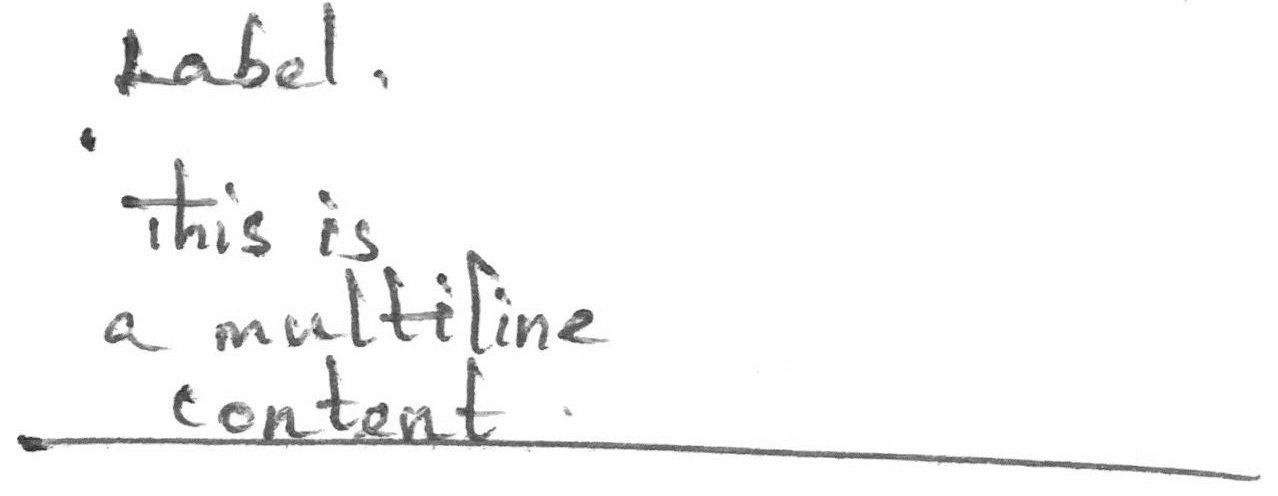 Label.
This is
a multiline
content.